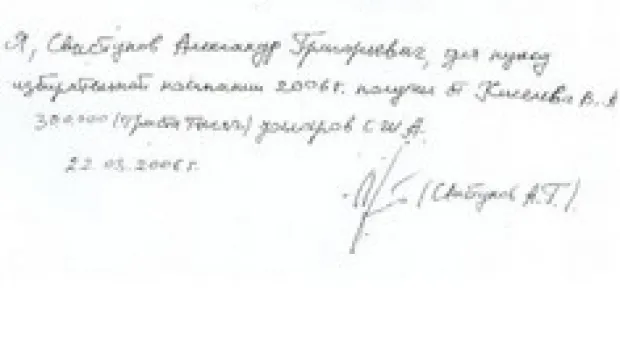 Я, Свистунов Александр Григорьевич, для нужд
избирательной кампании 2006 г. получил от Киселева В. А
300.000 (триста тысяч) долларов С Ш А.
22.03.2006 г.
(Свистунов А.Г.).